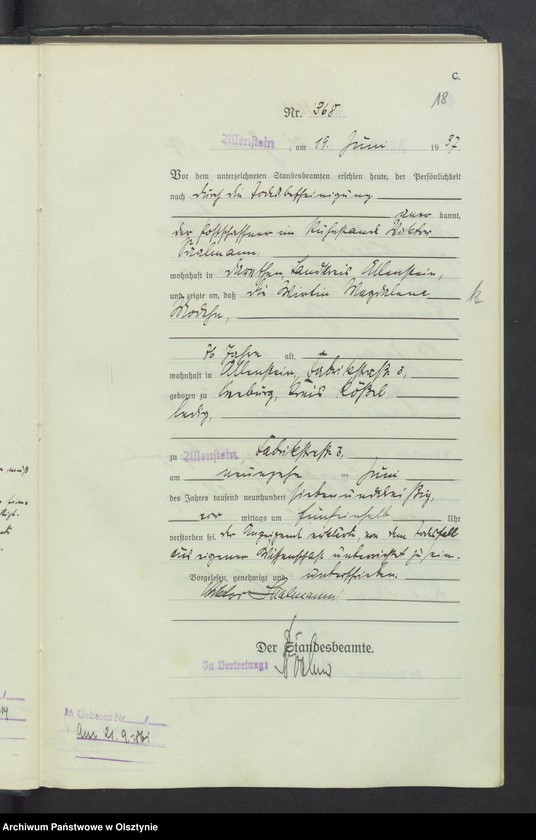 C.
18
Nr. 368
Allenstein, am 19. Juni 1937
Vor dem unterzeichneten Standesbeamten erschien heute, der Persönlichkeit
nach durch die Todesbescheinigung
aner kannt,
der Postschaffner im Ruhestand Viktor
wohnhaft in Landkreis Allenstein,
und zeigte an, daß die Wirtin Magdalena
76 Jahre alt,
wohnhaft in Allenstein, Fabrikstraße 3,
geboren zu Seeburg, Kreis Rößel
ledig,
zu Allenstein, Fabrikstraße 3,
am neunzehn ten Juni
des Jahres tausend neunhundert siebenunddreißig,
vor mittags um fünfeinhalb Uhr
verstorben sei. Der Anzeigende erklärte, von dem Todesfall
aus eigener Wissenschaft unterrichtet zu sein.
Vorgelesen, genehmigt und unterschrieben.
Viktor
Der Standesbeamte.
In Vertretung:
Geboren Nr.
Am 21.9.1861
Archiwum Państwowe w Olsztynie